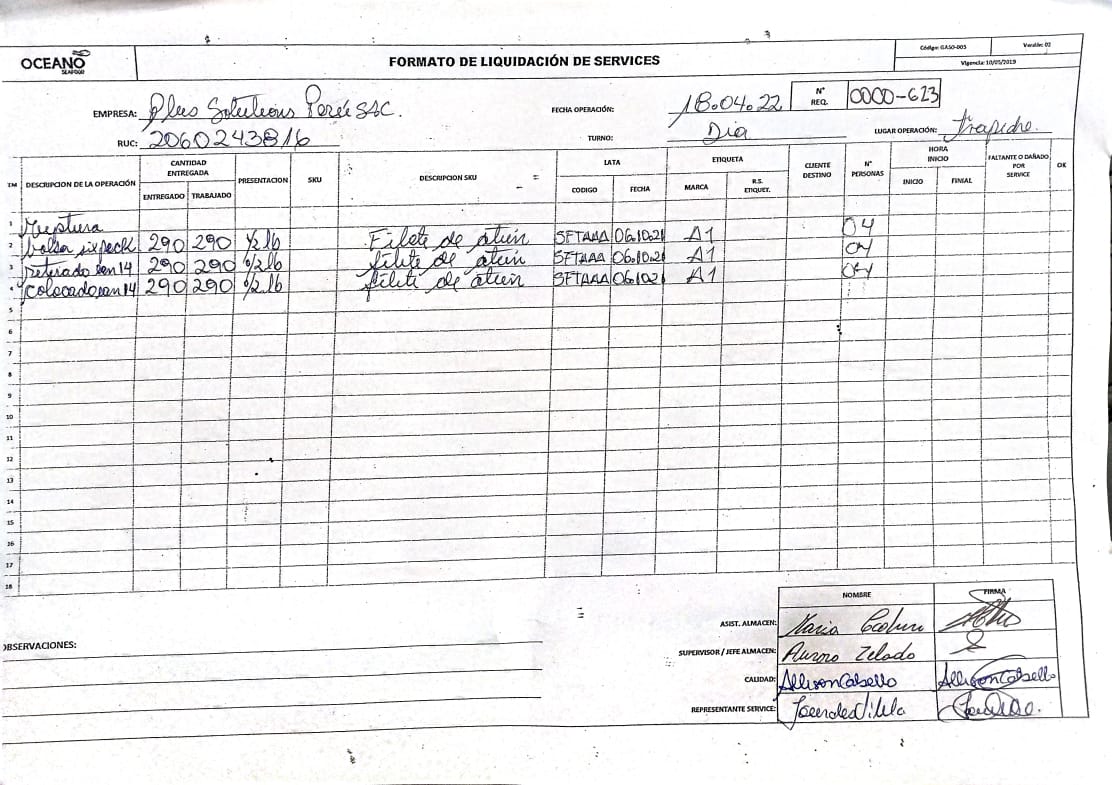 OCEANO
SEAFOOD
FORMATO DE LIQUIDACIÓN DE SERVICES
Código: GASO-005
Versión: 02
Vigencia: 10/05/2019
EMPRESA: Plus Solutions Perú SAC.
FECHA OPERACIÓN: 18.04.22
N° REQ. 0000-623
RUC: 2060243816
TURNO: Dia
LUGAR OPERACIÓN: Trapiche.
ITM DESCRIPCION DE LA OPERACIÓN CANTIDAD ENTREGADA ENTREGADO TRABAJADO PRESENTACION SKU DESCRIPCION SKU LATA CODIGO FECHA ETIQUETA MARCA R.S. ETIQUET. CLIENTE DESTINO N° PERSONAS HORA INICIO INICIO FINIAL FALTANTE O DAÑADO POR SERVICE OK
1 Ruptura 04
2 bolsa sixpack 290 290 1/2 lb Filete de atún SFTAAA 06.10.21 A1 04
3 retirado 290 290 1/2 lb filete de atún SFTAAA 06.10.21 A1 04
4 colocado 290 290 1/2 lb filete de atún SFTAAA 06.10.21 A1
5
6
7
8
9
10
11
12
13
14
15
16
17
18
NOMBRE FIRMA
OBSERVACIONES:
ASIST. ALMACEN: Maria
SUPERVISOR / JEFE ALMACEN: Zelado
CALIDAD: Allison Cabello Allison Cabello
REPRESENTANTE SERVICE: Lourdes Vilela